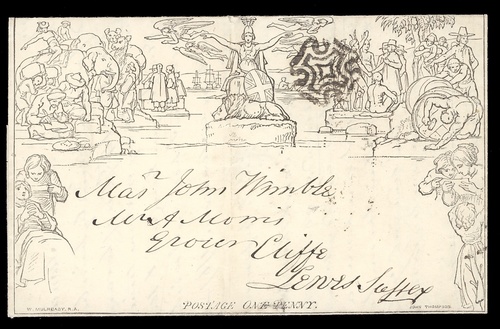 Mas.r John Wimble
Mr A Morris
Grocer Cliffe
Lewes Sussex
POSTAGE ONE PENNY.
W. MULREADY. R.A.
JOHN THOMPSON